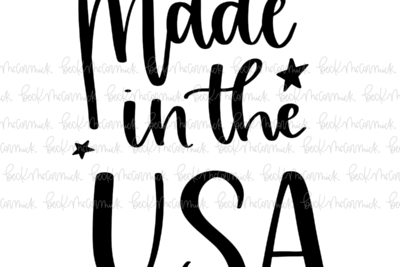 Made
in the
USA